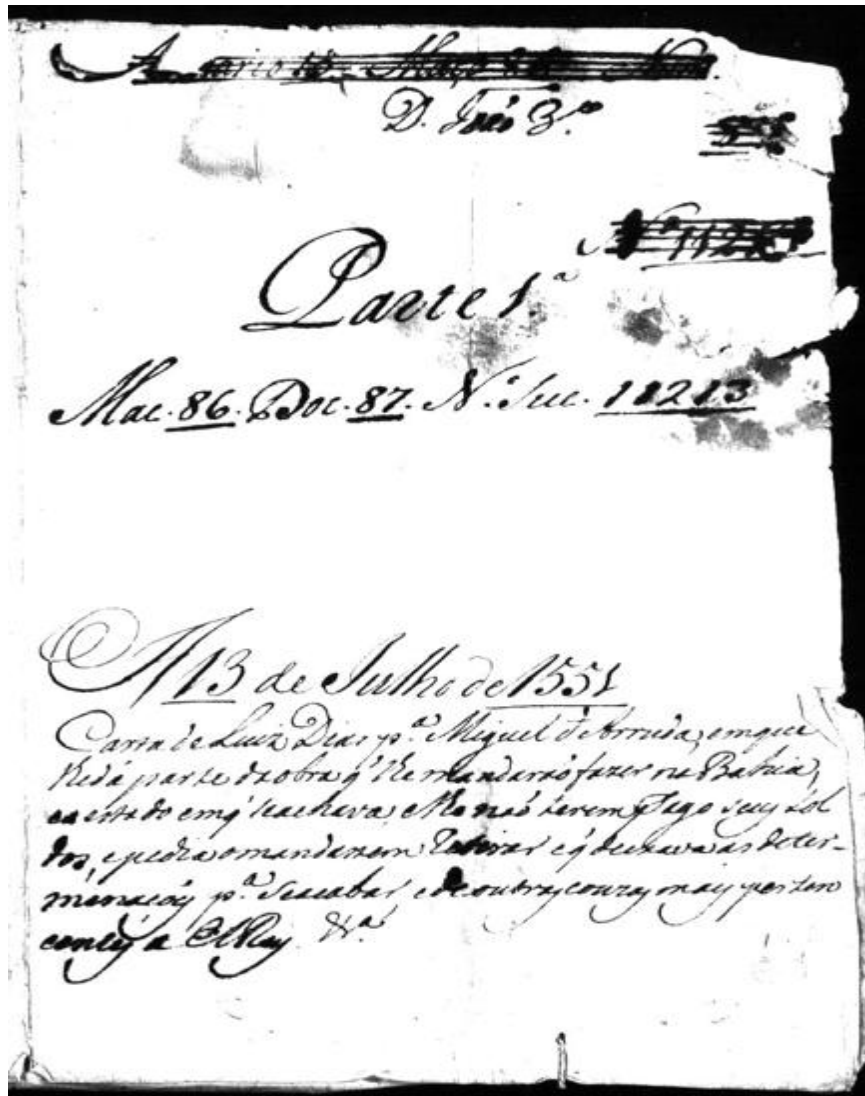 D. João 3.º
Nº 1121
Parte 1.ª
Mac. 86. Doc. 87. N.º Suc. 11213
A 13 de Julho de 1551
Carta de Luiz Dias p.ª Miguel d'Arruda, em que
lhe dá parte da obra q' lhe mandarão fazer na Bahia,
e o estado em q' se achava, e lhe não serem pago seus sol
dos, e pedia o mandarem retirar e q' deixava as deter-
minaçoiz p.ª se acabar, e de outras couzas mais perten
centes a El Rey &.ª